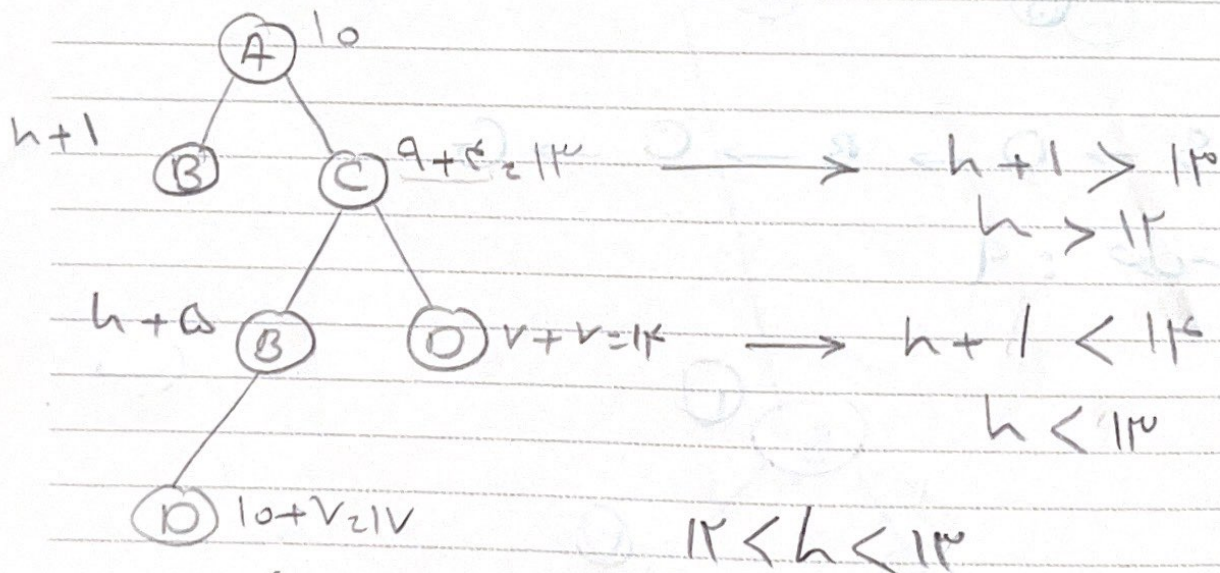 A 10
h+۱ B C ۹+۴=۱۳ → h+۱ > ۱۳
h > ۱۲
h+۵ B D ۷+۷=۱۴ → h+۱ < ۱۴
h < ۱۳
D ۱۰+۷=۱۷ ۱۲<h<۱۳